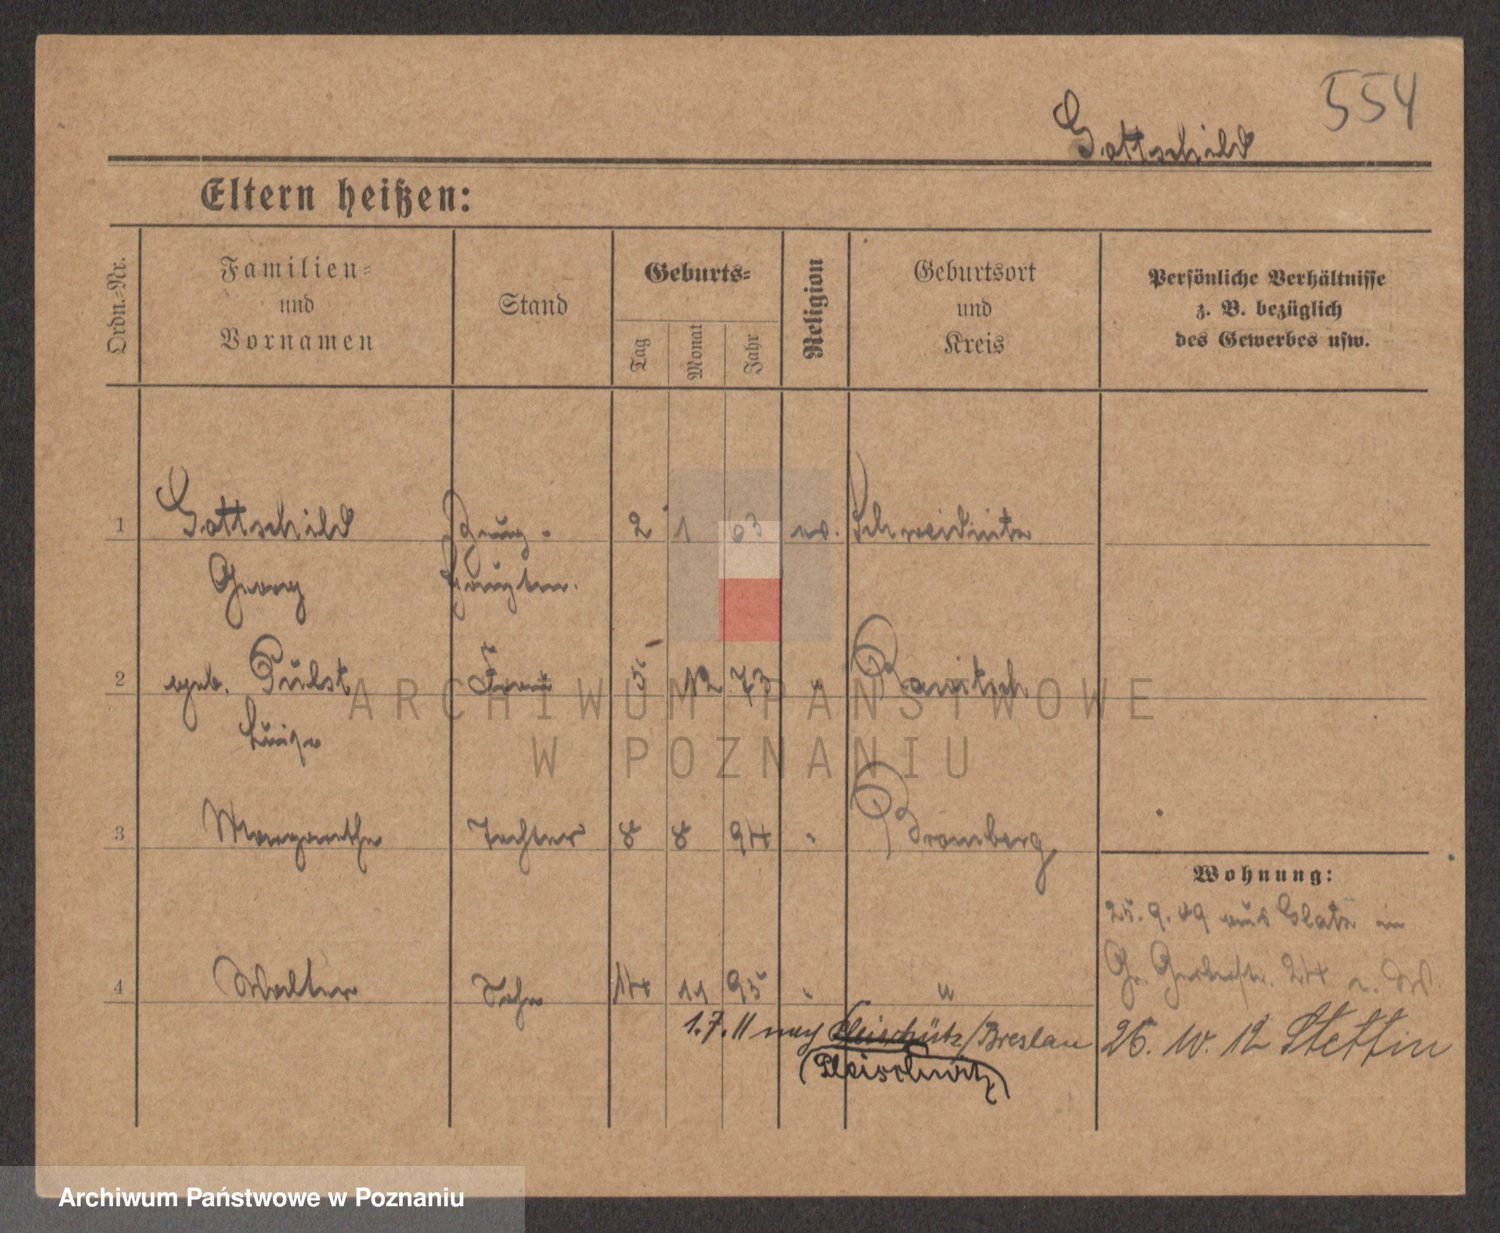 554
Gottschild
Eltern heißen:
Ordn.-Nr.
Familien-
und
Vornamen
Stand
Geburts-
Tag
Monat
Jahr
Religion
Geburtsort
und
Kreis
Persönliche Verhältnisse
z. B. bezüglich
des Gewerbes usw.
1 Gottschild Zeug- 2 1 63 ev. Schweidnitz
Georg Hauptm.
2 geb. Pulst Frau 5 12 73 " Rawitsch
Luise
3 Margarethe Tochter 8 8 94 " Bromberg
Wohnung:
25. 9. 09 aus Glatz in
4 Walter Sohn 14 11 95 " "
Gr. Gerberstr. 24
1.7.11 nach /Breslau
26. 10. 12 Stettin
Pleischwitz
ARCHIWUM PAŃSTWOWE
W POZNANIU
Archiwum Państwowe w Poznaniu